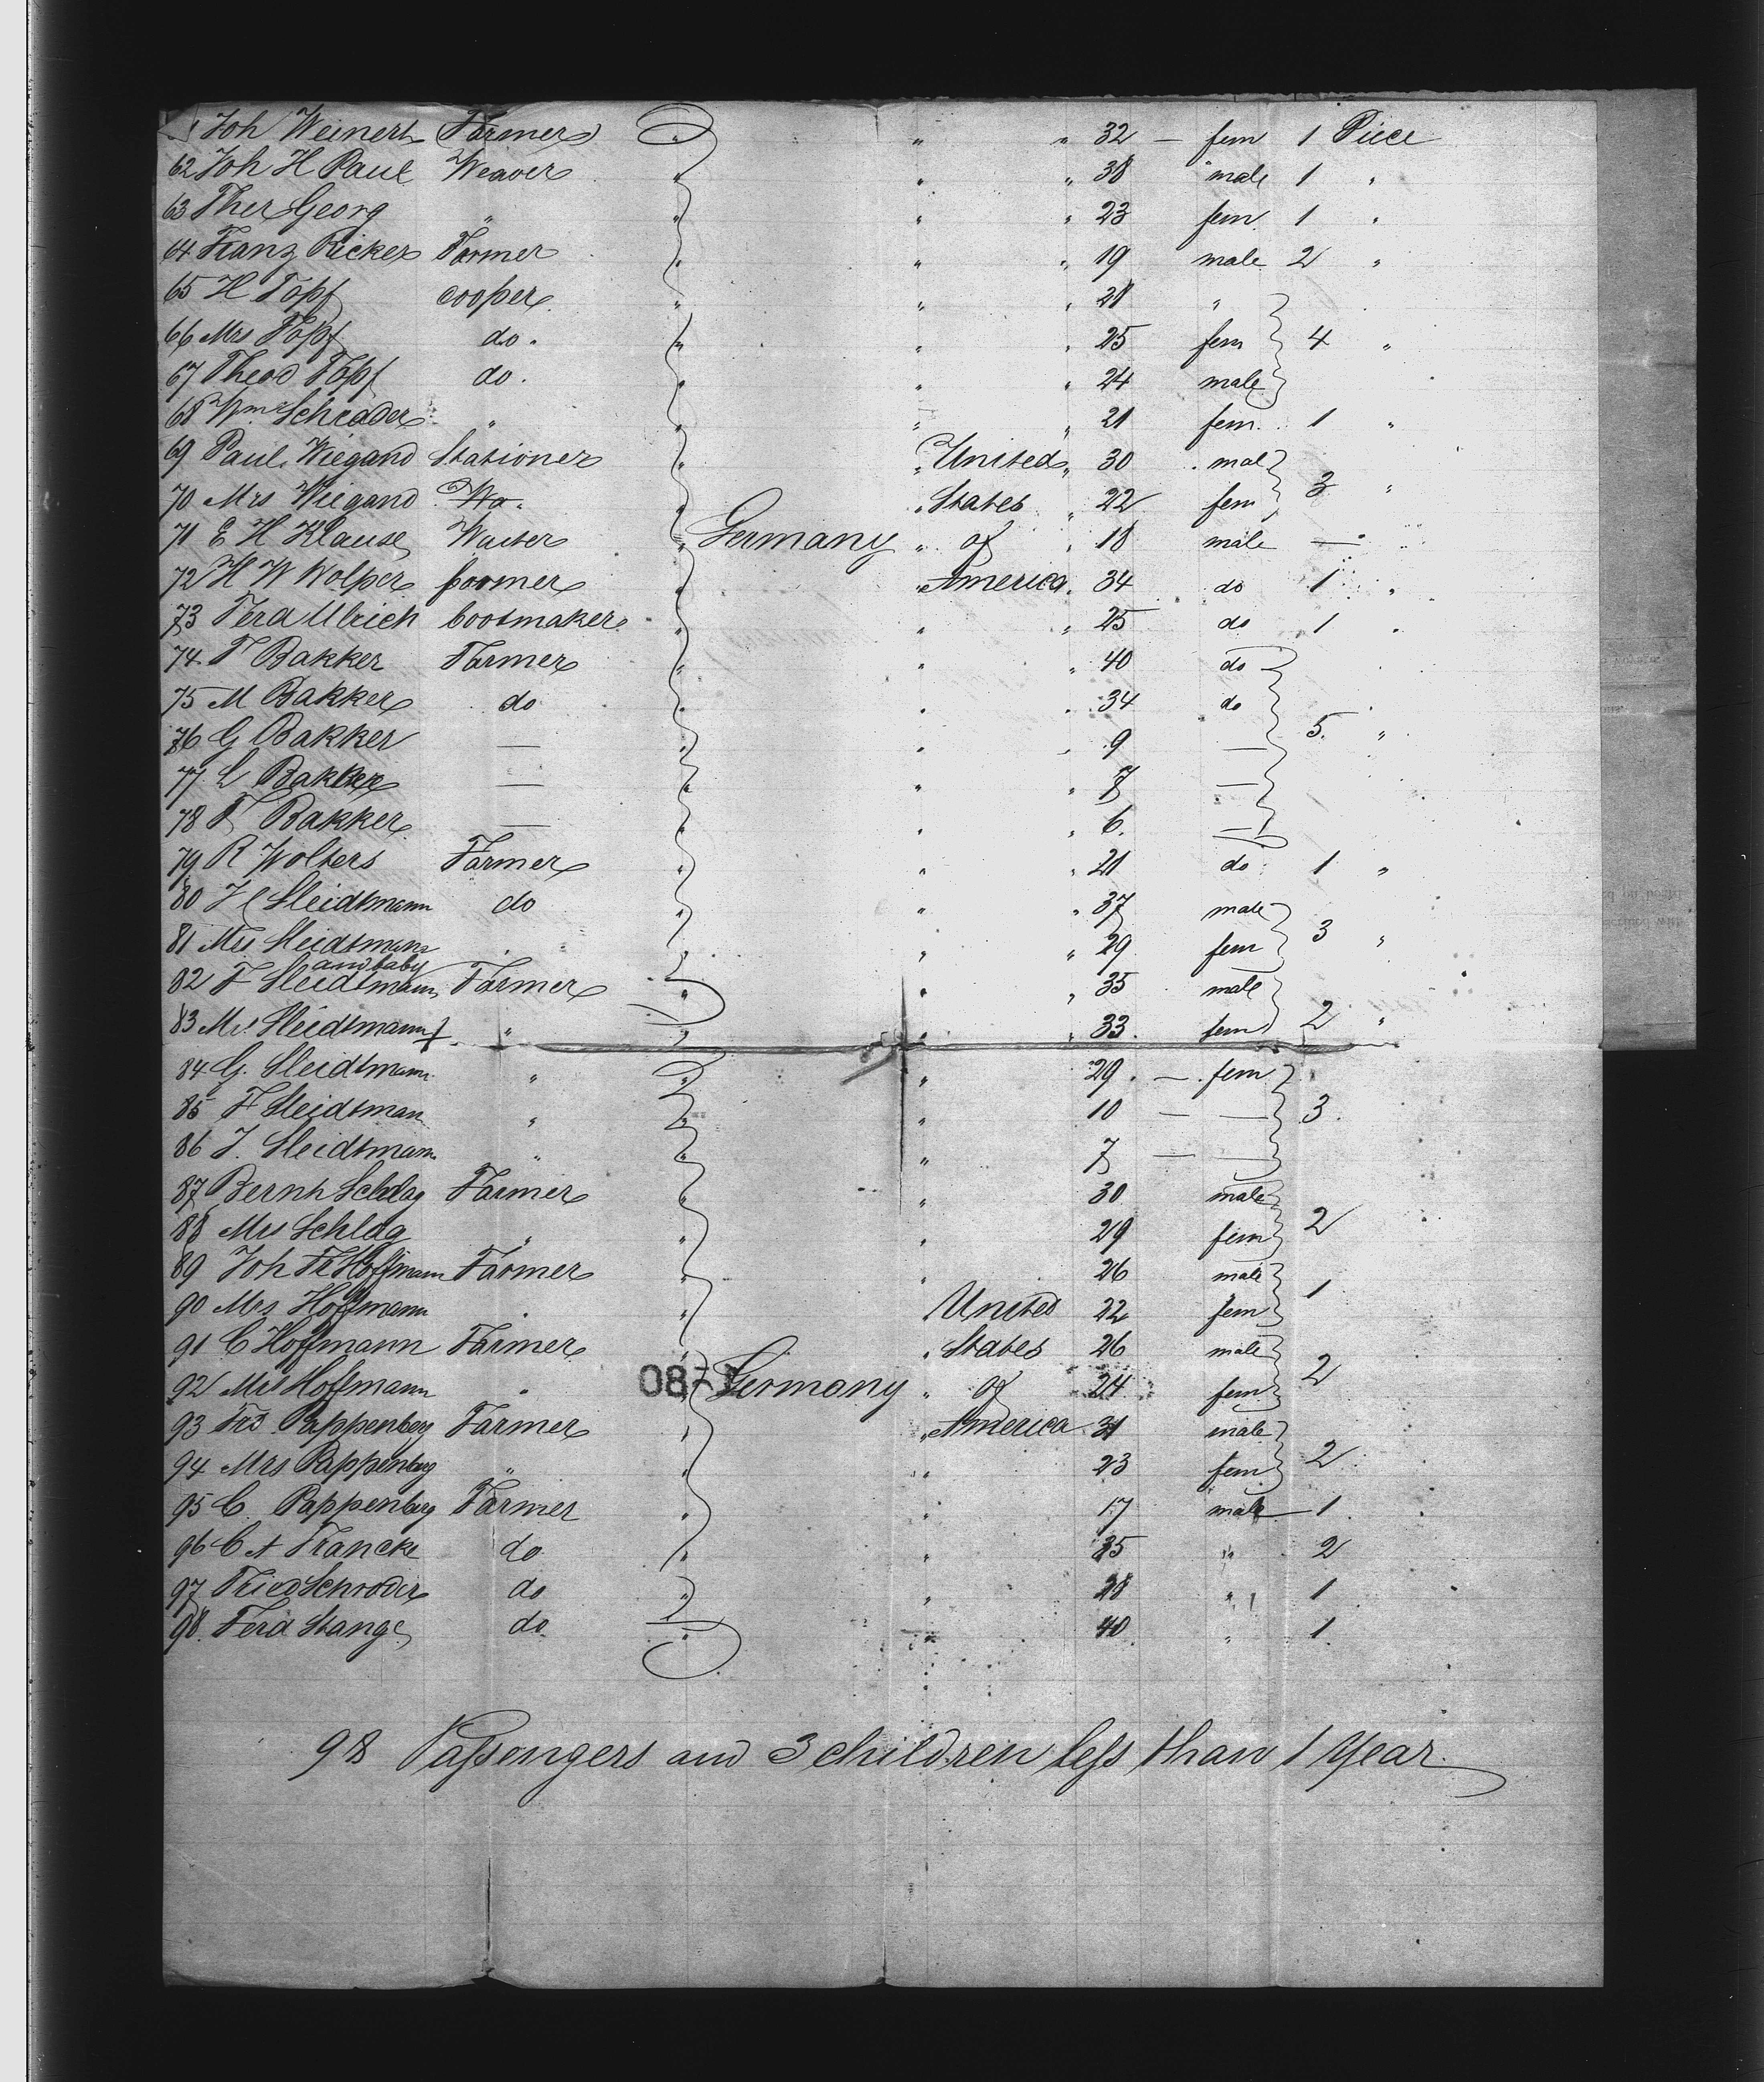 Joh Weinert Farmer " " " 32 — fem 1 Piece
62 Joh H Paul Weaver " " " 38 male 1 "
63 Ther Georg " " " " 23 fem. 1 "
64 Franz Ricker Farmer " " " 19 male 2 "
65 H Topf cooper " " " 28 "
66 Mrs Topf do. " " " 25 fem 4 "
67 Theod Topf do. " " " 24 male
68 Wme Schrader " " " " 21 fem. 1 "
69 Paul Wiegand Stationer " " United " 30 mal
70 Mrs Wiegand " " States " 22 fem 3 "
71 E H Klause Waiter " Germany " of " 18 male — "
72 H W Wolper " " America " 34 do 1 "
73 Ferd Ulrich bootmaker " " " 25 do 1 "
74 F Bakker Farmer " " " 40 do
75 M Bakker do " " " 34 do
76 G Bakker — " " " 9 — 5. "
77 L Bakker — " " " 8 —
78 F Bakker — " " " 6. —
79 R Wolters Farmer " " " 21 do 1 "
80 H Sleidtmann do " " " 37 male
81 Mrs Sleidtmann " " " " 29 fem 3 "
and baby
82 F Sleidtmann Farmer " " " 35 male
83 Mrs Sleidtmann " " " " 33 fem 2 "
84 G. Sleidtmann " " " 29. — fem
85 F Sleidtman " " " 10 — — 3.
86 J. Sleidtmann " " " 7 — —
87 Bernh Schlag Farmer " " 30 male
88 Mrs Schlag " " " 29 fem 2
89 Joh Fr Hoffmann Farmer " " 26 male
90 Mrs Hoffmann " " " United 22 fem 1
91 C Hoffmann Farmer " " States 26 male
92 Mrs Hoffmann " " Germany " of 24 fem 2
08-1
93 Frd. Pappenberg Farmer " " America 31 male
94 Mrs Pappenberg " " " 23 fem 2
95 C. Pappenberg Farmer " " 17 male — 1
96 C A Francke do " " 35 " 2
97 Fried Schroder do " " 28 " 1
98. Ferd Stange do " " 40 " 1.
98 Passengers and 3 children less than 1 Year.